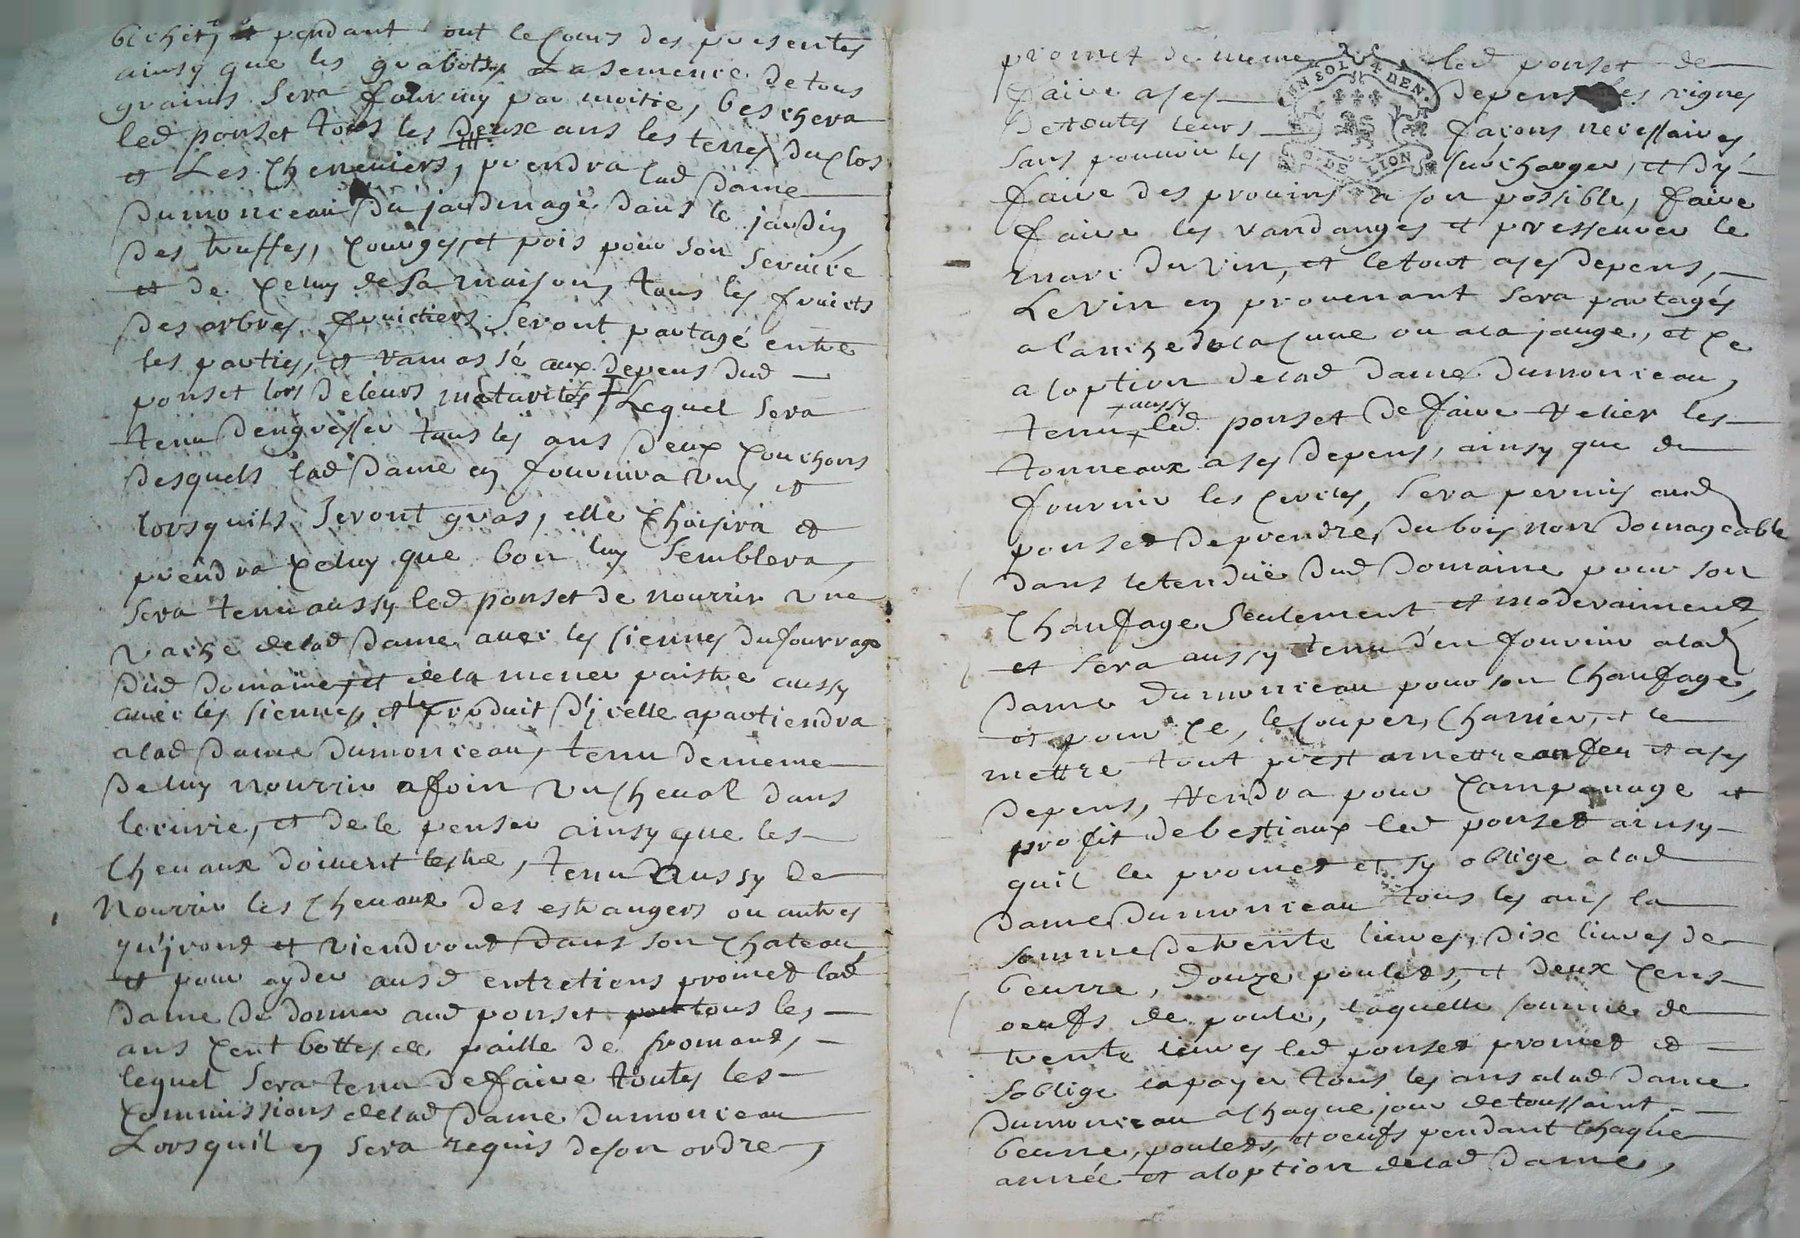 bichet, et pendant tout le cours des presentes
ainsy que les grabots, La semence de tous
grains Sera fourny par moitie, beschera
led ponset tous les deux ans les terres du clos
et Les Cheneviers, prendra lad Dame
Dumonceau du jardinage dans le jardin,
Des truffes, courges, et pois pour son service
et de celuy de sa maison, tous les fruicts
Des arbres fruictiers Seront partagé entre
les parties, et ramassé aux depens dud
ponset lors de leurs maturités Lequel Sera
tenu dengresser tous les ans deux couchons
Desquels lad Dame en fournira un, et
lorsquils Seront gras, elle choisira et
prendra celuy que bon luy Semblera,
Sera tenu aussy led ponset de nourrir une
vache de lad Dame avec les siennes du fourrage
dud Domaine, et de la mener paistre aussy
avec les siennes, et le produit d'jcelle apartiendra
a lad Dame Dumonceau, tenu de meme
De luy nourrir a foin un cheval dans
lecurie, et de le penser ainsy que les
Chevaux doivent lestre, tenu aussy de
Nourrir les chevaux des estrangers ou autres
qu'jront et viendront dans son chateau
et pour ayder ausd entretiens promet lad
Dame de donner aud ponset tous les
ans cent bottes de paille de fromant,
lequel Sera tenu de faire toutes les
Commissions de lad Dame Dumonceau
Lorsquil en Sera requis de son ordre,
promet de meme led ponset de
faire a ses depens les vignes
De toutes leurs façons necessaires
Sans pouvoir les surcharger, et d'y
faire des provins a son possible, faire
faire les vandanges et pressurer le
marc du vin, et le tout a ses depens,
Le vin en provenant Sera partagés
a lanche de la cuve ou a la jauge, et ce
a loption de lad Dame Dumonceau,
aussy
tenu led ponset de faire relier les
tonneaux a ses depens, ainsy que de
fournir les cercles, Sera permis aud
ponset de prendre du bois non domageable
dans letenduë dud Domaine pour son
Chaufage Seulement et moderaiment,
et Sera aussy tenu d'en fournir a lad
Dame Dumonceau pour son Chaufage,
et pour ce, le couper, charrier, et le
mettre tout prest a mettre au feu et a ses
depens, rendra pour Campanage et
profit de bestiaux led ponset ainsy
quil le promet et s'y oblige a lad
Dame Dumonceau tous les ans la
somme de trente livres, dix livres de
beurre, douze poulets, et deux cens
oeufs de poule, laquelle somme de
trente livres led ponset promet et
soblige la payer tous les ans a lad Dame
Dumonceau a chaque jour de toussaint,
beurre, poulets, et oeufs pendant chaque
année et a loption de lad Dame,
UN SOL 4 DEN.
G. DE LION